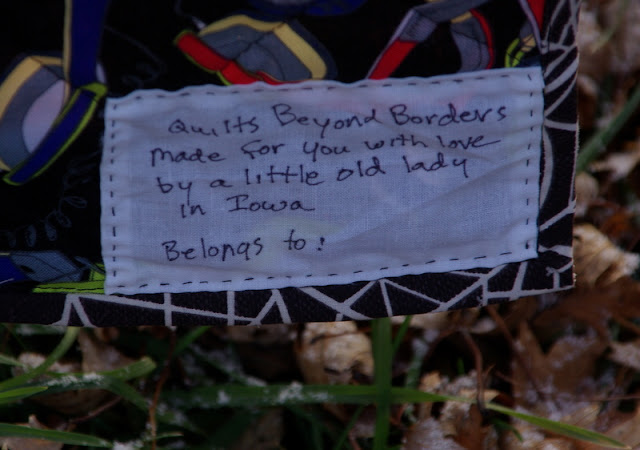 Quilts Beyond Borders
made for you with love
by a little old lady
in Iowa
Belongs to: